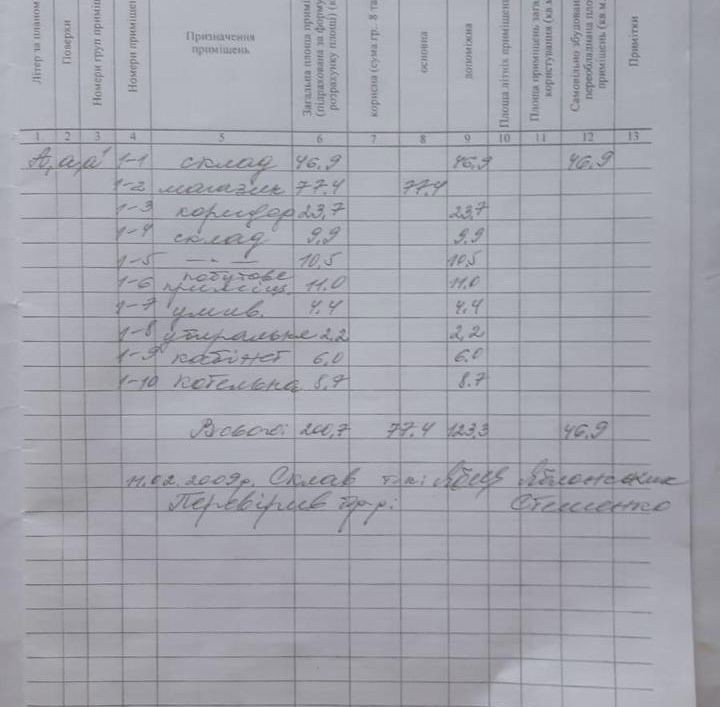 Літер за планом
Поверхи
Номери груп приміщ
Номери приміщен
Призначення
приміщень
Загальна площа примі
(підрахована за форму
розрахунку площі) (к
корисна (сума гр.. 8 та
основна
допоміжна
Площа літніх приміщен
Площа приміщень зага
користування (кв.м
Самовільно збудован
переобладнана пло
приміщень (кв.м.
Примітки
1 2 3 4 5 6 7 8 9 10 11 12 13
А, а, а¹ 1-1 склад 46.9 46.9 46.9
1-2 магазин 77.4 77.4
1-3 коридор 23,7 23,7
1-4 склад 9,9 9,9
1-5 —"— 10,5 10,5
1-6 побутове
приміщ. 11.0 11.0
1-7 умив. 4.4 4.4
1-8 убиральня 2,2 2,2
1-9 кабінет 6,0 6.0
1-10 котельна 8,7 8.7
Всього: 200,7 77.4 123,3 46.9
11.02.2009р. Склав
Перевірив